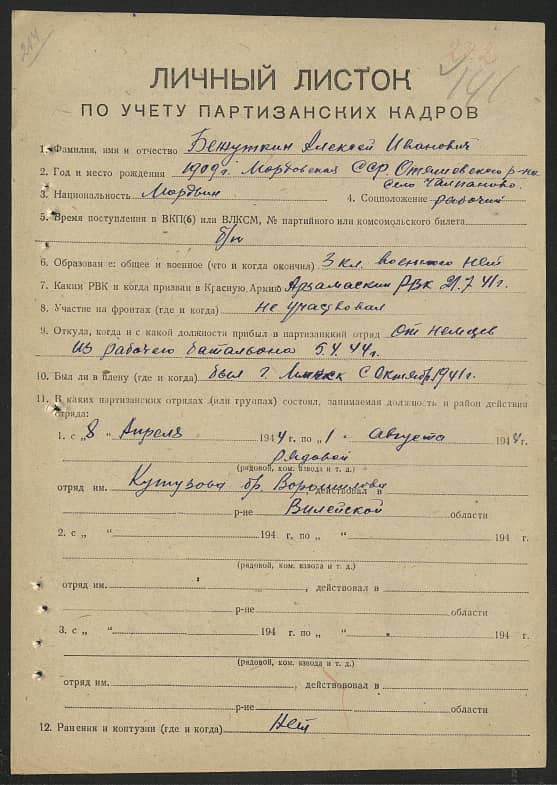 214
222
141
ЛИЧНЫЙ ЛИСТОК
ПО УЧЕТУ ПАРТИЗАНСКИХ КАДРОВ
1. Фамилия, имя и отчество Бежуткин Алексей Иванович
2. Год и место рождения 1909г. Мордовская ССР Атяшевского р-на
село Чалпаново.
3. Национальность Мордвин 4. Соцположение рабочий
5. Время поступления в ВКП(б) или ВЛКСМ, № партийного или комсомольского билета
б/п
6. Образование: общее и военное (что и когда окончил) 3 кл. военного нет
7. Каким РВК и когда призван в Красную Армию Арзамаским РВК 21.7.41г.
8. Участие на фронтах (где и когда) не участвовал
9. Откуда, когда и с какой должности прибыл в партизанский отряд от немцев
из рабочего батальона 5.4.44г.
10. Был ли в плену (где и когда) был г. Минск с Октябр. 1941г.
11. В каких партизанских отрядах (или группах) состоял, занимаемая должность и район действия
отряда:
1. с „ 8 Апреля 1944 г. по „ 1 " Августа 1944 г.
рядовой
(рядовой, ком. взвода и т. д.)
отряд им. Кутузова бр. Ворошилова действовал в
р-не Вилейской области
2. с „ " 194 г. по „ " 194 г.
(рядовой, ком. взвода и т. д.)
отряд им. , действовал в
р-не области
3. с „ " 194 г. по „ " 194 г.
(рядовой, ком. взвода и т. д.)
отряд им. , действовал в
р-не области
12. Ранения и контузии (где и когда) Нет